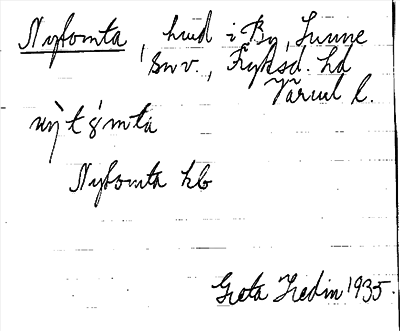 Nytomta, hmd i By, Sunne
snv., Fryksd. hd
Värml l.
nỳt8̀mta
Nytomta kb
Greta Hedin 1935.